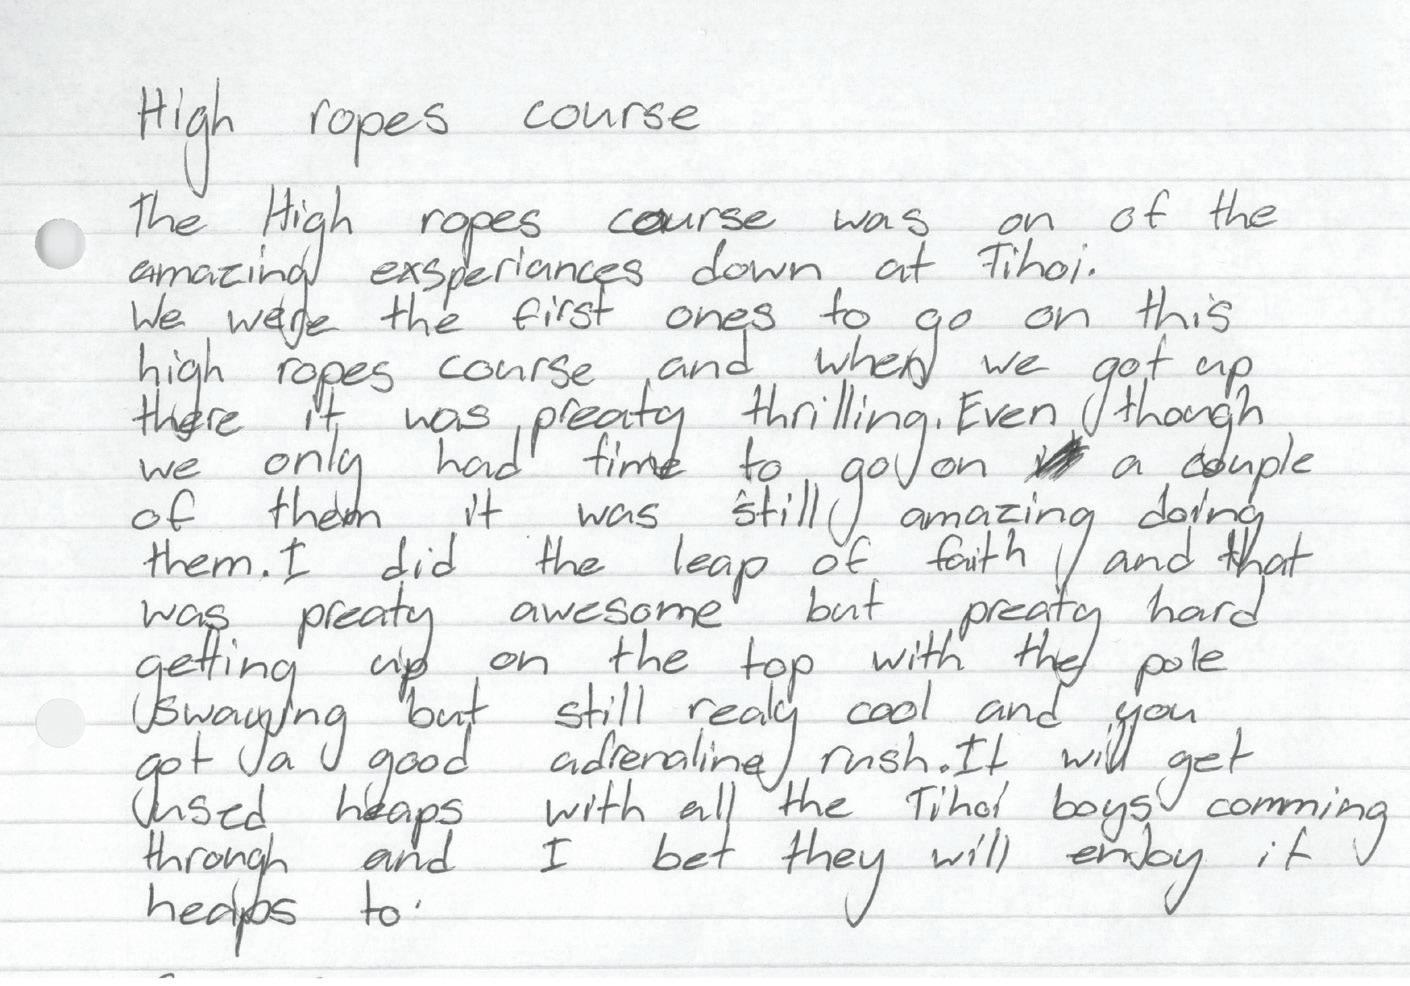 High ropes course
The High ropes course was on of the
amazing exsperiances down at Tihoi.
We were the first ones to go on this
high ropes course and when we got up
there it was preaty thrilling. Even though
we only had time to go on a couple
of them it was still amazing doing
them. I did the leap of faith and that
was preaty awesome but preaty hard
getting up on the top with the pole
swaying but still realy cool and you
got a good adrenaline rush. It will get
used heaps with all the Tihoi boys comming
through and I bet they will enjoy it
heaps to.